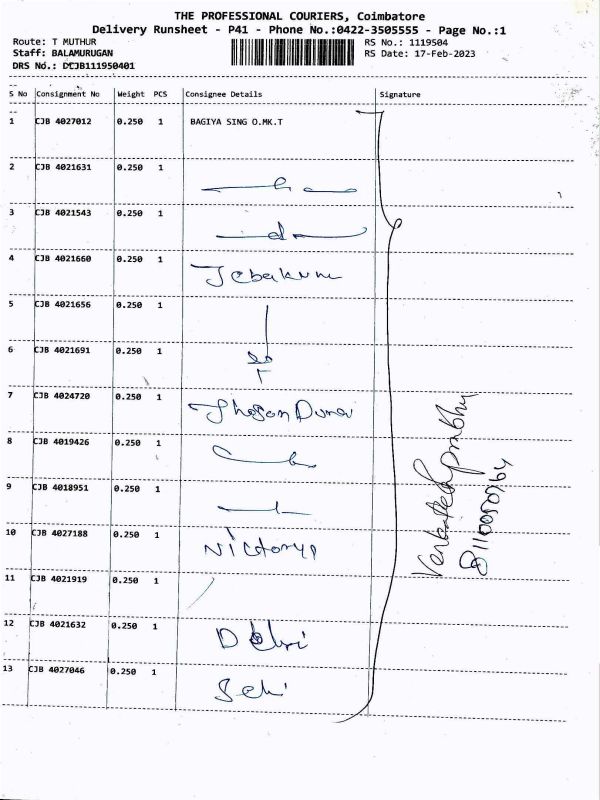 THE PROFESSIONAL COURIERS, Coimbatore
Delivery Runsheet - P41 - Phone No.:0422-3505555 - Page No.:1
Route: T MUTHUR
RS No.: 1119504
Staff: BALAMURUGAN
RS Date: 17-Feb-2023
DRS No.: DCJB111950401
S No Consignment No Weight PCS Consignee Details Signature
1 CJB 4027012 0.250 1 BAGIYA SING O.MK.T
2 CJB 4021631 0.250 1
3 CJB 4021543 0.250 1
4 CJB 4021660 0.250 1 Jebakum
5 CJB 4021656 0.250 1
6 CJB 4021691 0.250 1
7 CJB 4024720 0.250 1
8 CJB 4019426 0.250 1
9 CJB 4018951 0.250 1
10 CJB 4027188 0.250 1
11 CJB 4021919 0.250 1
12 CJB 4021632 0.250 1
13 CJB 4027046 0.250 1 Selvi